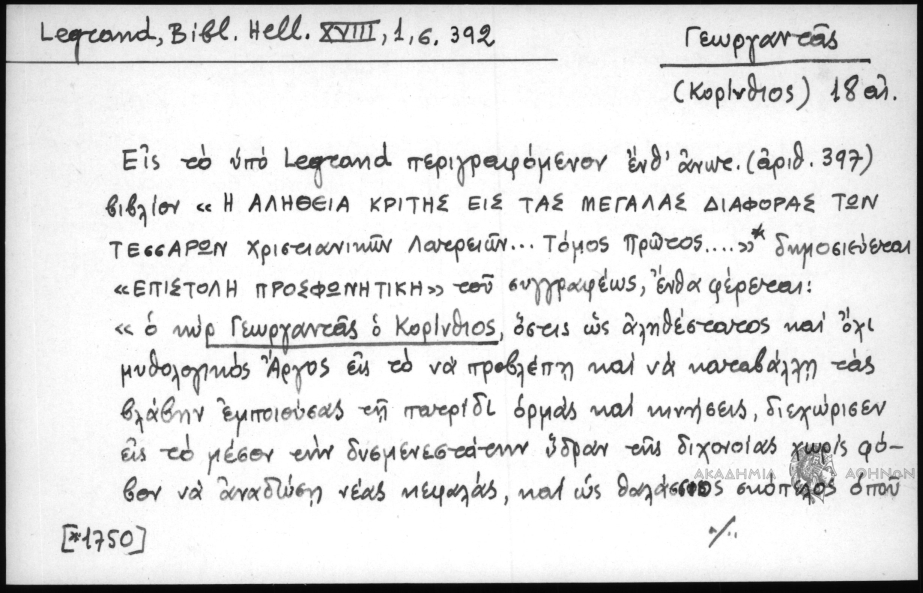 Legrand, Bibl. Hell. XVIII, 1, σ. 392
Γεωργαντᾶς
(Κορίνθιος) 18 αἰ.
Εἰς τὸ ὑπὸ Legrand περιγραφόμενον ἔνθ' ἄνωτ. (ἀριθ. 397)
βιβλίον « Η ΑΛΗΘΕΙΑ ΚΡΙΤΗΣ ΕΙΣ ΤΑΣ ΜΕΓΑΛΑΣ ΔΙΑΦΟΡΑΣ ΤΩΝ
ΤΕΣΣΑΡΩΝ Χριστιανικῶν Λατρειῶν... Τόμος Πρῶτος....»* δημοσιεύεται
«ΕΠΙΣΤΟΛΗ ΠΡΟΣΦΩΝΗΤΙΚΗ» τοῦ συγγραφέως, ἔνθα φέρεται:
« ὁ κὺρ Γεωργαντᾶς ὁ Κορίνθιος, ὅστις ὡς ἀληθέστατος καὶ ὄχι
μυθολογικὸς Ἄργος εἰς τὸ νὰ προβλέπῃ καὶ νὰ καταβάλλῃ τὰς
βλάβην ἐμποιούσας τῇ πατρίδι ὁρμὰς καὶ κινήσεις, διεχώρισεν
εἰς τὸ μέσον τὴν δυσμενεστάτην ὕδραν τῆς διχονοίας χωρὶς φό-
βον νὰ ἀναδώσῃ νέας κεφαλάς, καὶ ὡς θαλάσσιος σκόπελος ὁποῦ
ΑΚΑΔΗΜΙΑ ΑΘΗΝΩΝ
[*1750]
./..